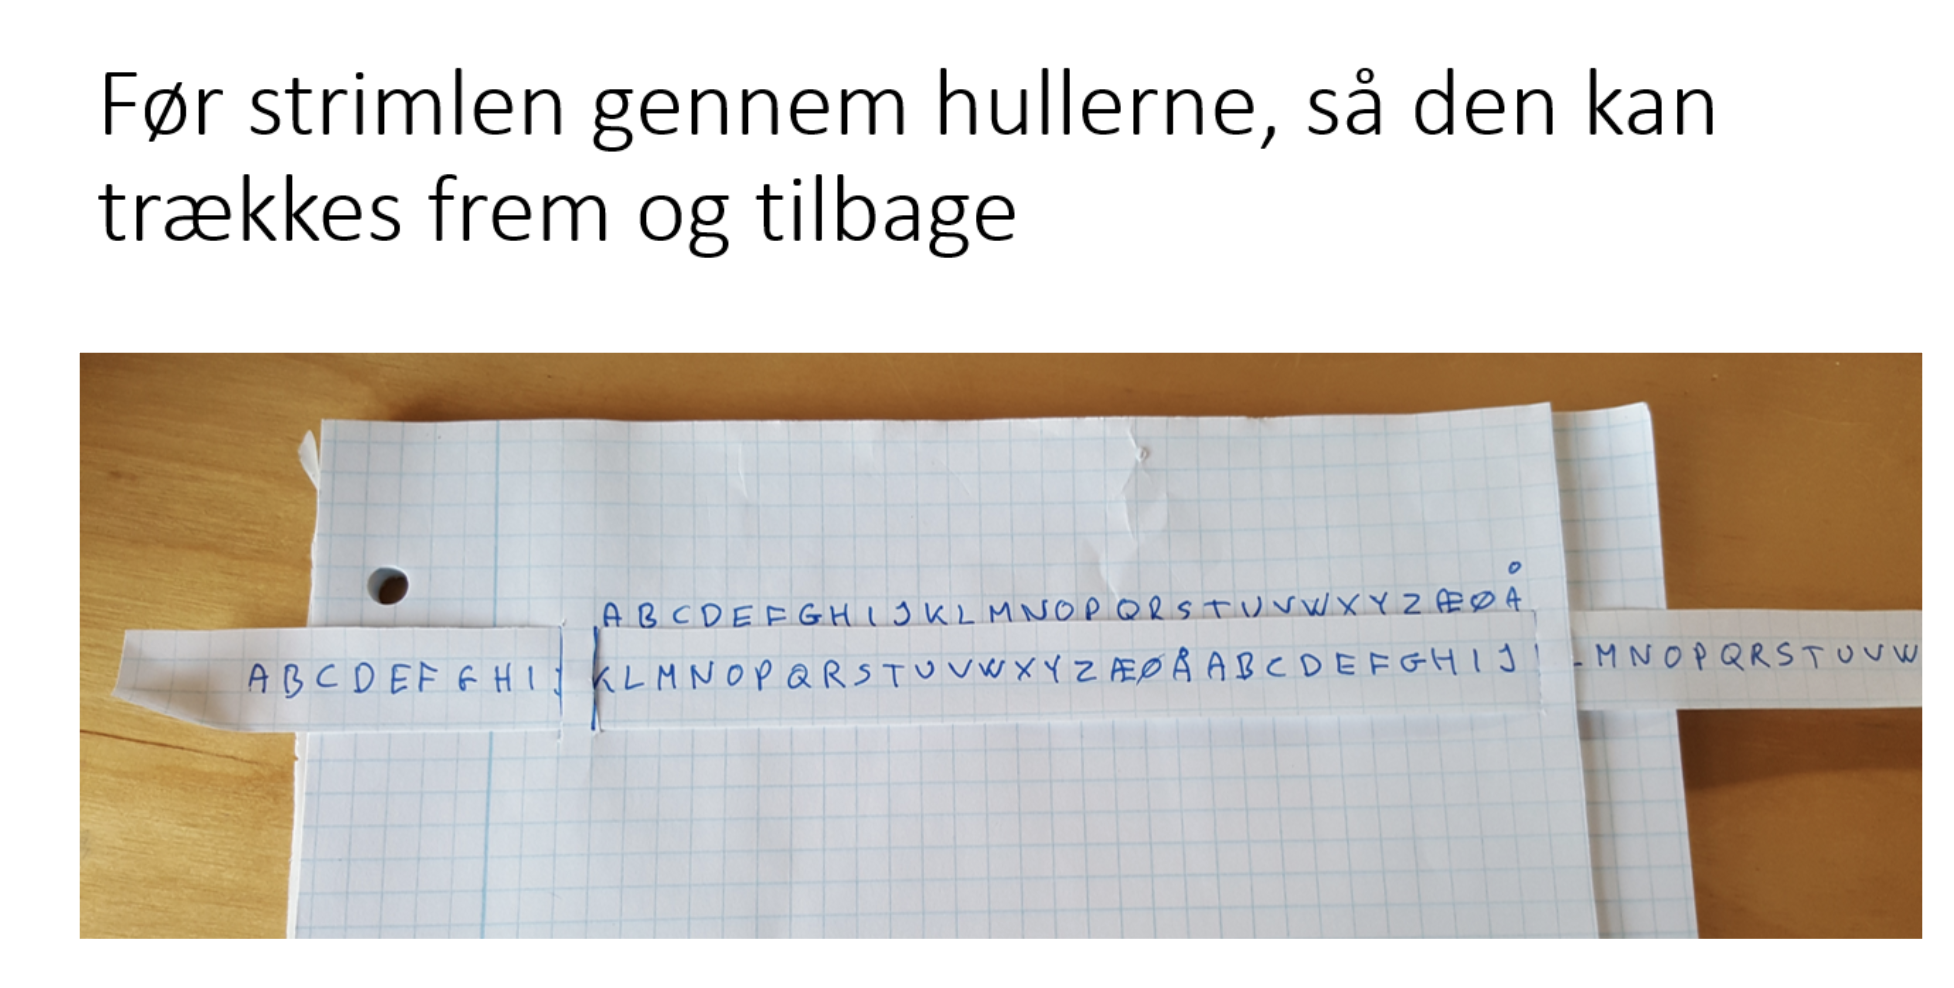 Før strimlen gennem hullerne, så den kan
trækkes frem og tilbage
A B C D E F G H I J K L M N O P Q R S T U V W X Y Z Æ Ø Å
A B C D E F G H I K L M N O P Q R S T U V W X Y Z Æ Ø Å A B C D E F G H I J M N O P Q R S T U V W